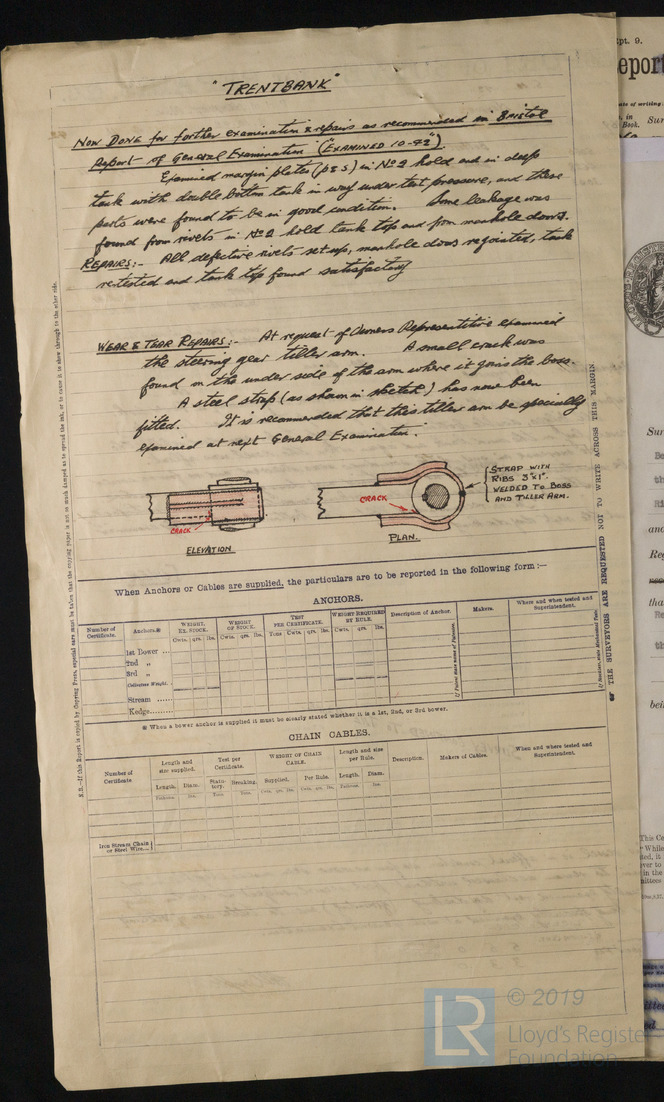 "TRENTBANK"
NOW DONE for further examination & repairs as recommended in Bristol
Report of General Examination ("EXAMINED 10-42").
Examined margin plates (p & s) in No 2 hold and in deep
tank with double bottom tank in way under test pressure, and these
parts were found to be in good condition. Some leakage was
found from rivets in No 2 hold tank top and from manhole doors.
REPAIRS:- All defective rivets set up, manhole doors rejointed, tank
retested and tank top found satisfactory
WEAR & TEAR REPAIRS:- At request of Owners Representative examined
the steering gear tiller arm. A small crack was
found on the under side of the arm where it joins the boss.
A steel strap (as shown in sketch) has now been
fitted. It is recommended that this tiller arm be specially
examined at next General Examination.
STRAP WITH
RIBS 3"x1"
WELDED TO BOSS
AND TILLER ARM.
CRACK
CRACK
ELEVATION
PLAN.
When Anchors or Cables are supplied, the particulars are to be reported in the following form :—
ANCHORS.
Number of Certificate. Anchors.* WEIGHT, EX. STOCK. WEIGHT OF STOCK. TEST PER CERTIFICATE. WEIGHT REQUIRED BY RULE. Description of Anchor. Makers. When and where tested and Superintendent.
Cwts. qrs. lbs. Cwts. qrs. lbs. Tons Cwts. qrs. lbs. Cwts. qrs. lbs.
1st Bower ...
2nd „
3rd „
Collective Weight.
Stream ......
Kedge.........
* When a bower anchor is supplied it must be clearly stated whether it is a 1st, 2nd, or 3rd bower.
CHAIN CABLES.
Number of Certificate. Length and size supplied. Test per Certificate. WEIGHT OF CHAIN CABLE. Length and size per Rule. Description. Makers of Cables. When and where tested and Superintendent.
Length. Diam. Statutory. Breaking. Supplied. Per Rule. Length. Diam.
Fathoms. Ins. Tons. Tons. Cwts. qrs. lbs. Cwts. qrs. lbs. Fathoms. Ins.
Iron Stream Chain
or Steel Wire...
N.B.—If this Report is copied by Copying Press, especial care must be taken that the copying paper is not so much damped as to spread the ink, or to cause it to show through to the other side.
THE SURVEYORS ARE REQUESTED NOT TO WRITE ACROSS THIS MARGIN.
Rpt. 9.
LR
© 2019
Lloyd's Register
Foundation